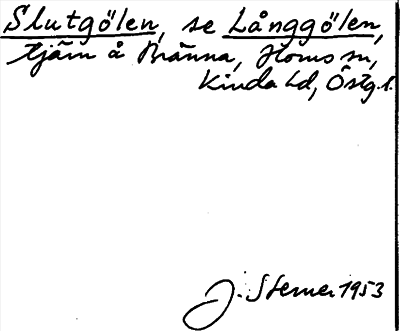 Slutgölen, se Långgölen,
tjärn å Bränna, Horns sn,
Kinda hd, Östg.l.
J. Sterner 1953